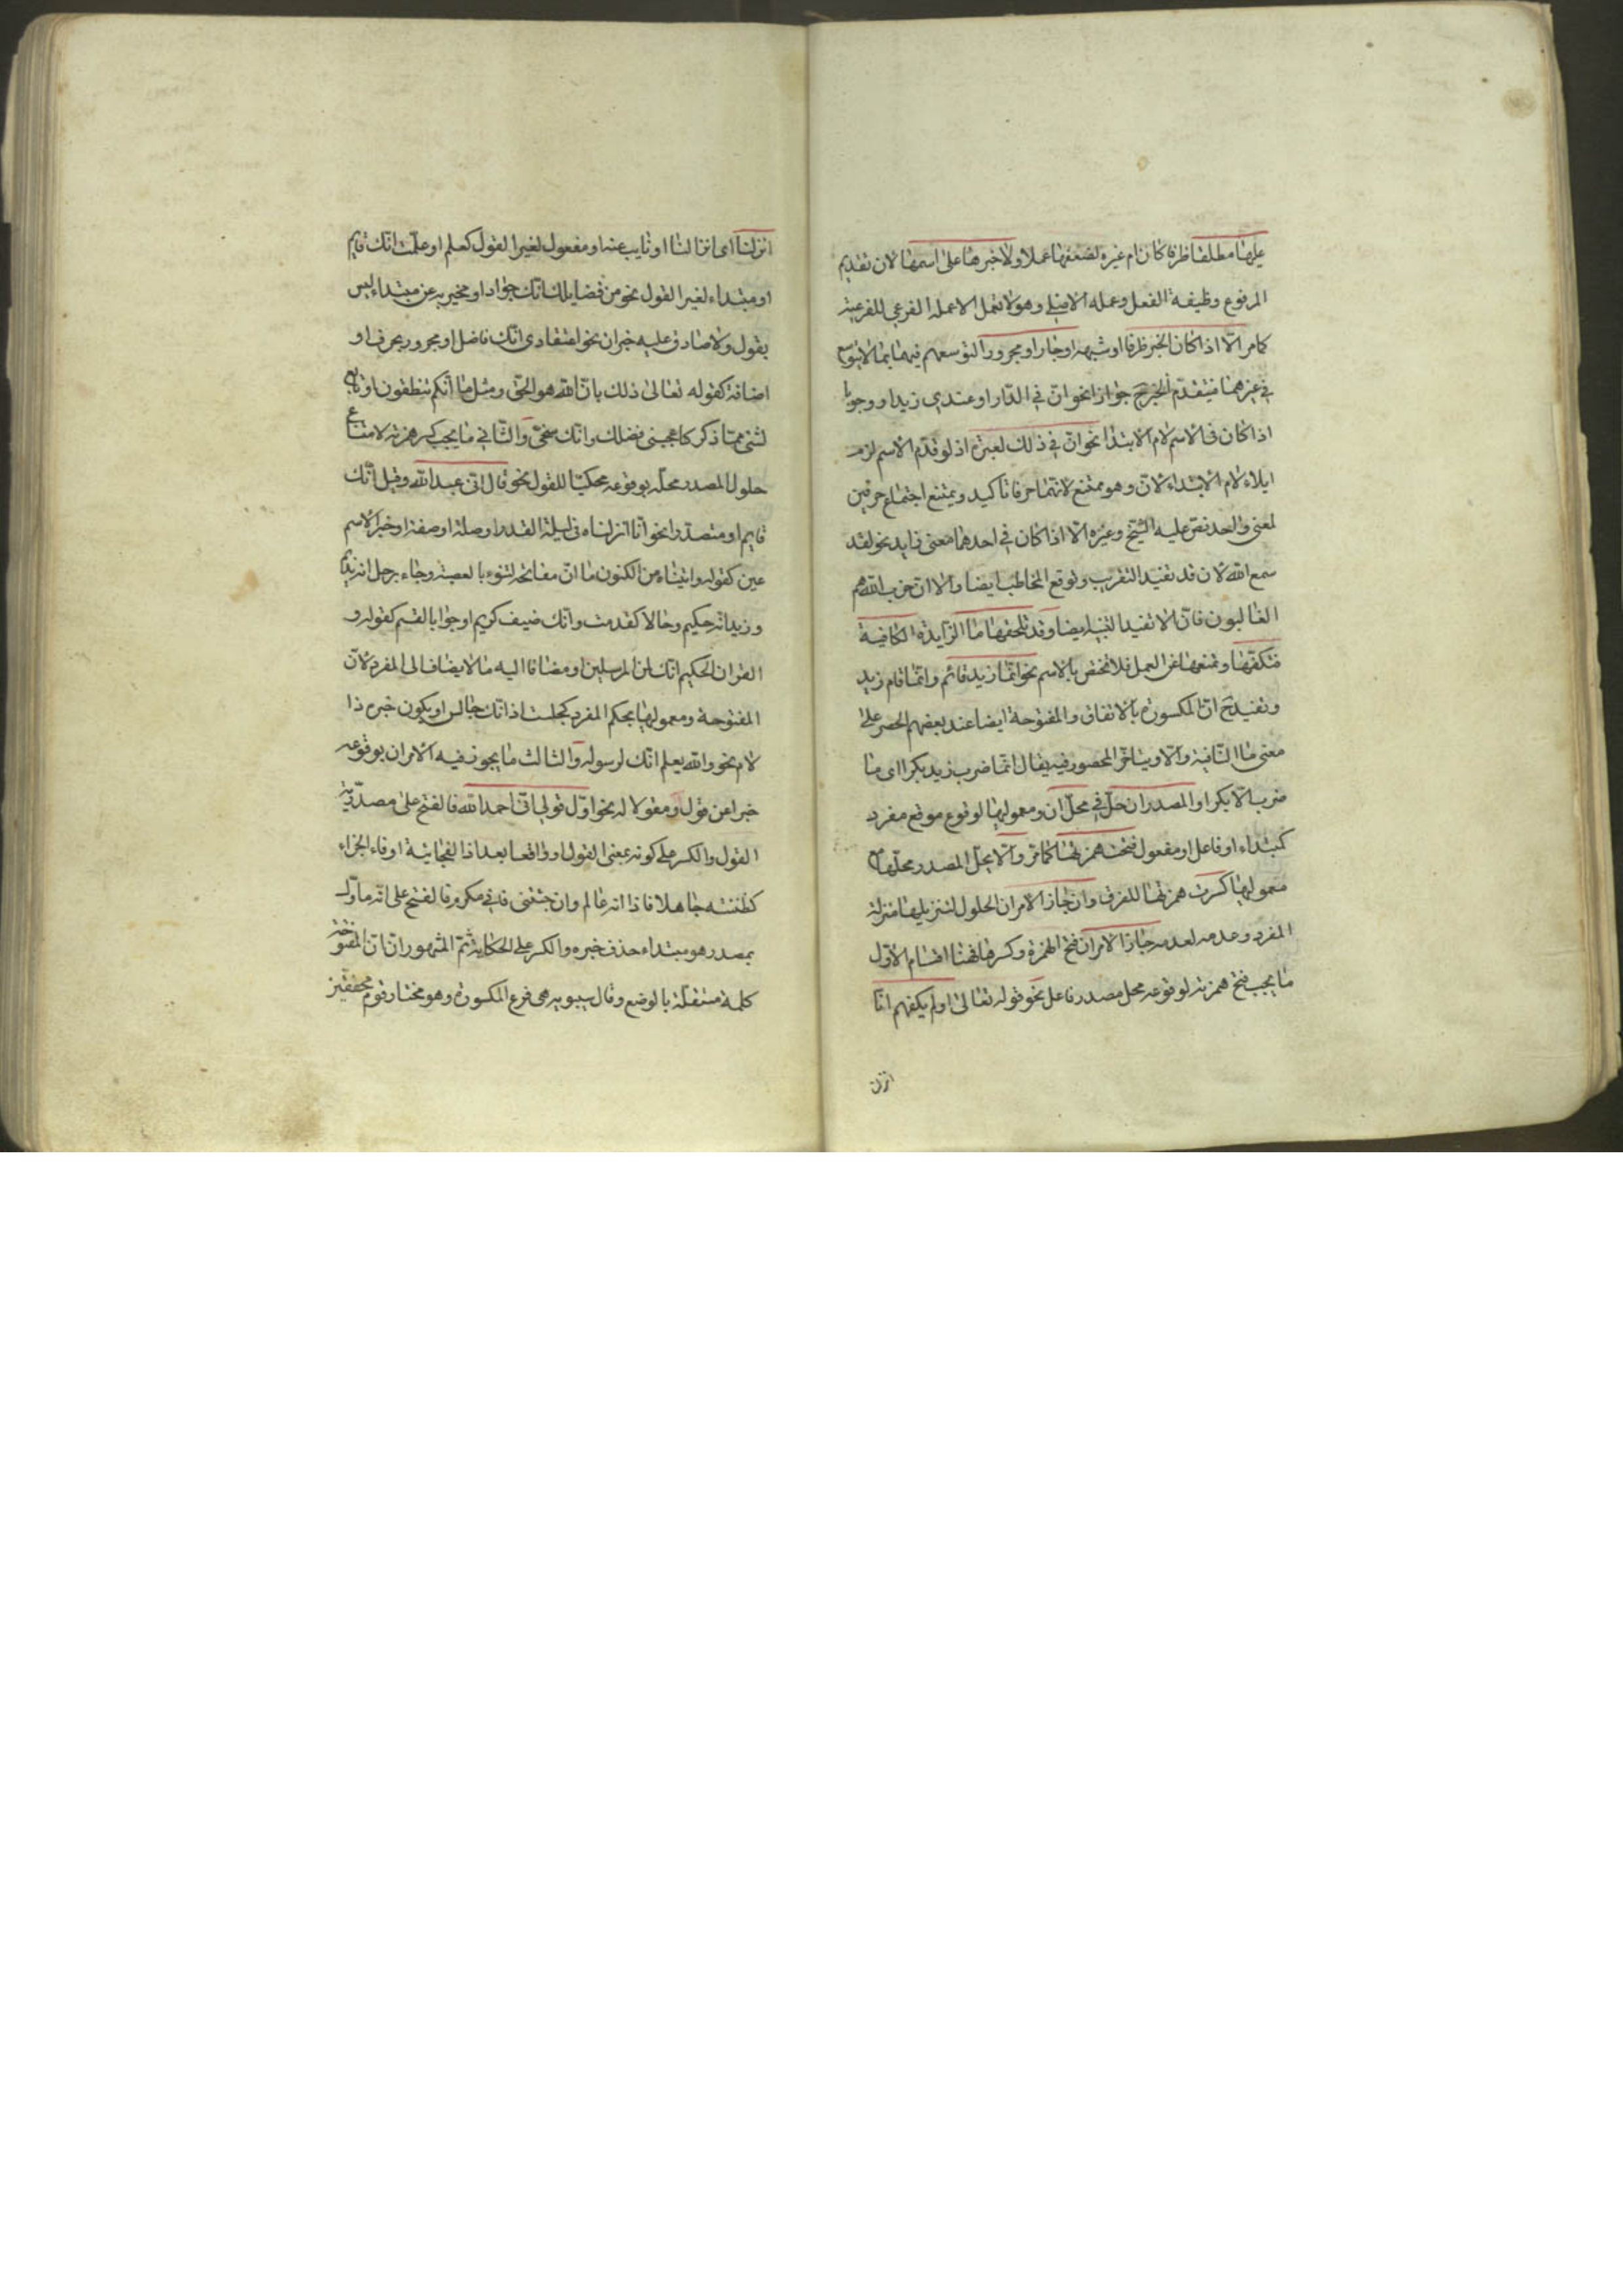 عليها مطلقا ظرفا كان ام غيره لضعفها عملا ولا خبرها على اسمها لان تقديم
المرفوع وظيفة الفعل وعمله الاصلي وهو لا تعمل الا عمله الفرعي للفرعية
كما مر الا اذا كان الخبر ظرفا او شبهه او جارا ومجرورا لتوسعهم فيهما بما لا يتوسع
في غيرهما فيتقدم الخبر ح جوازا نحو ان في الدار او عندي زيدا ووجوبا
اذا كان في الاسم لام الابتدا نحو ان في ذلك لعبرة اذ لو قدم الاسم لزم
ايلاء لام الابتداء لان وهو ممتنع لانهما حرفا تاكيد ويمتنع اجتماع حرفين
لمعنى واحد نص عليه الشيخ وغيره الا اذا كان في احدهما معنى زايد نحو لقد
سمع الله لان قد تفيد التقريب وتوقع المخاطب ايضا والا ان حزب الله هم
الغالبون فان الا تفيد التنبيه ايضا وقد تلحقها ما الزايدة الكافية
فتكفها وتمنعها عن العمل فلا تختص بالاسم نحو انما زيد قائم وانما قام زيد
وتفيد ح ان المكسورة بالاتفاق والمفتوحة ايضا عند بعضهم الحصر على
معنى ما النافية والا ويتاخر المحصور فيه فيقال انما ضرب زيد بكرا اى ما
ضرب الا بكرا والمصدر ان حل في محل ان ومعموليها لوقوع موقع مفرد
كمبتداء او فاعل او مفعول فتحت همزتها كما مر والا يحل المصدر محلها مع
معموليها كسرت همزتها للفرق وان جاز الامران الحلول لتنزيلها منزلة
المفرد وعدمه لعدمه جاز الامران فتح الهمزة وكسرها فهنا اقسام الاول
ما يجب فتح همزته لوقوعه محل مصدر فاعل نحو قوله تعالى اولم يكفهم انا
انزلنا
انزلنا اى انزالنا او نايب عنه او مفعول لغير القول كعلم او علمت انك قايم
او مبتداء لغير القول نحو من فضايلك انك جواد او مخبر به عن مبتداء ليس
بقول ولا صادق عليه خبر ان نحو اعتقادى انك فاضل او مجرور بحرف او
اضافة كقوله تعالى ذلك بان الله هو الحق ومثل ما انكم تنطقون او تابع
لشئ مما ذكر كاعجبنى فضلك وانك سخى والثاني ما يجب كسر همزته لامتناع
حلول المصدر محله بوقوعه محكيا للقول نحو قال انى عبد الله وقيل انك
قايم او متصدرا نحو انا انزلناه فى ليلة القدر او صلة او صفة او خبر الاسم
عين كقوله واتيناه من الكنوز ما ان مفاتحه لتنوء بالعصبة وجاء رجل انه كريم
وزيد انه حكيم وحالا كقدمت وانك ضيف كريم او جوابا لقسم كقوله و
القران الحكيم انك لمن المرسلين او مضافا اليه ما لا يضاف الى المفرد لان
المفتوحة ومعموليها بحكم المفرد كجلست اذ انك جالس او يكون خبره ذا
لام نحو والله يعلم انك لرسوله والثالث ما يجوز فيه الامران بوقوعه
خبرا عن قول او مقولا له نحو اول قولى انى احمد الله فالفتح على مصدرية
القول والكسر على كونه بمعنى القول او واقعا بعد اذا الفجائية او فاء الجزاء
كظننته جاهلا فاذا انه عالم وان جئتنى فانى مكرم فالفتح على انه ماول
بمصدر هو مبتداء حذف خبره والكسر على الحكاية ثم المشهور ان ان المفتوحة
كلمة مستقلة بالوضع وقال سيبويه هى فرع المكسورة وهو مختار قوم محققين